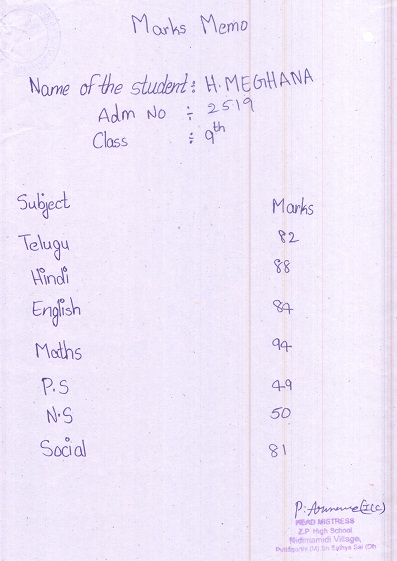 Marks Memo
Name of the student : H. MEGHANA
Adm No ÷ 2519
Class ÷ 9th
Subject Marks
Telugu 82
Hindi 88
English 84
Maths 94
P.S 49
N.S 50
Social 81
HEAD MISTRESS
Z.P. High School
Nidimamidi Village,